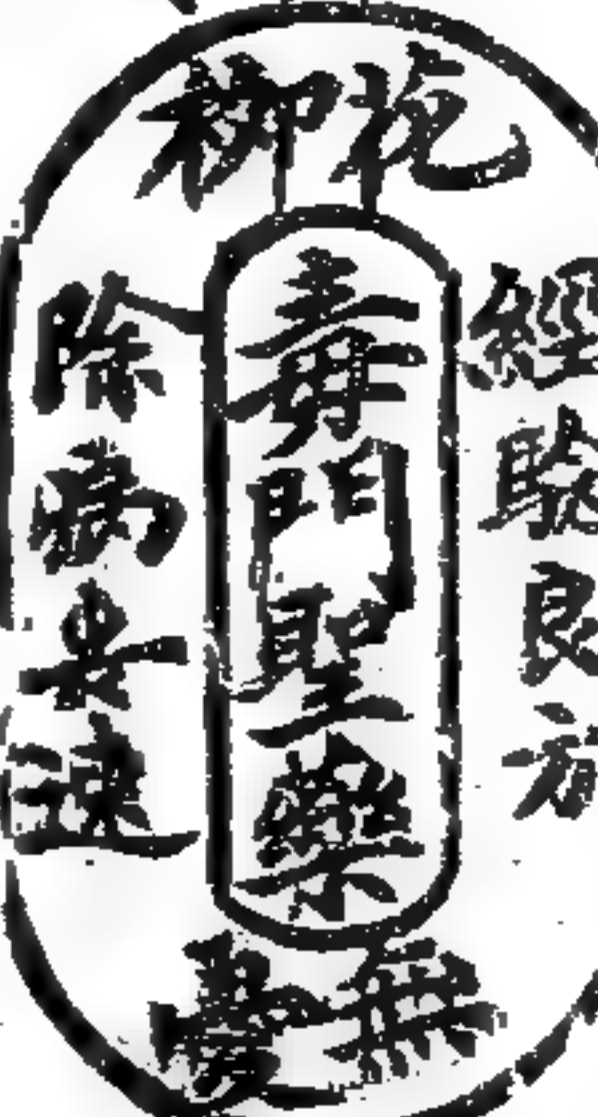 花柳
經驗良方
毒門聖藥
除病安速
無憂